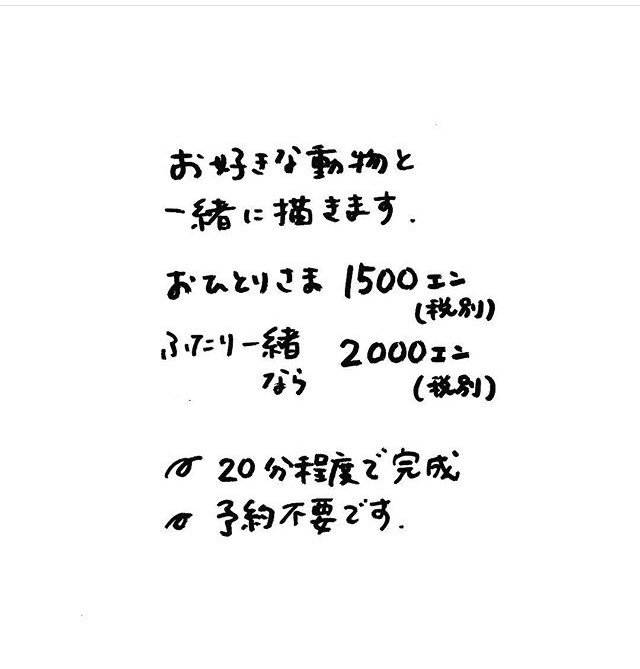 お好きな動物と
一緒に描きます.
おひとりさま 1500エン
(税別)
ふたり一緒 2000エン
なら (税別)
20分程度で完成
予約不要です.